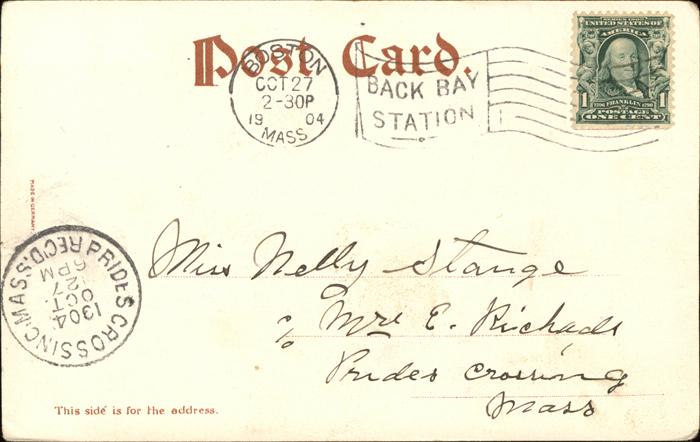 Post Card.
BOSTON
OCT 27
2-30P
19 04
MASS
BACK BAY
STATION
SERIES 1902
UNITED STATES OF
AMERICA
1706 FRANKLIN 1790
1 1
POSTAGE
ONE CENT
MADE IN GERMANY
PRIDES CROSSING MASS. REC'D.
1904
OCT.
27
6 PM
Miss Nelly Stange
c/o Mrs E. Richads
Prides Crossing
Mass
This side is for the address.